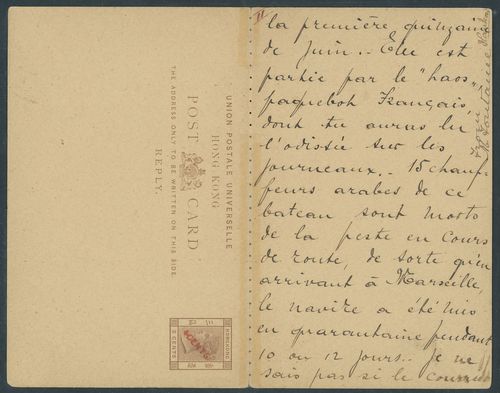 UNION POSTALE UNIVERSELLE
HONG KONG
POST CARD
THE ADDRESS ONLY TO BE WRITTEN ON THIS SIDE
REPLY.
HONG KONG
5 CENTS
II
la première quinzaine
de Juin.. Elle est
partie par le "Laos",
paquebot Français,
dont tu auras lu
l'odissée sur les
journeaux.. 15 chauf-
feurs arabes de ce
bateau sont morts
de la peste en cours
de route, de sorte qu'en
arrivant à Marseille,
le navire a été mis
en quarantaine pendant
10 ou 12 jours.. Je ne
sais pas si le courrier